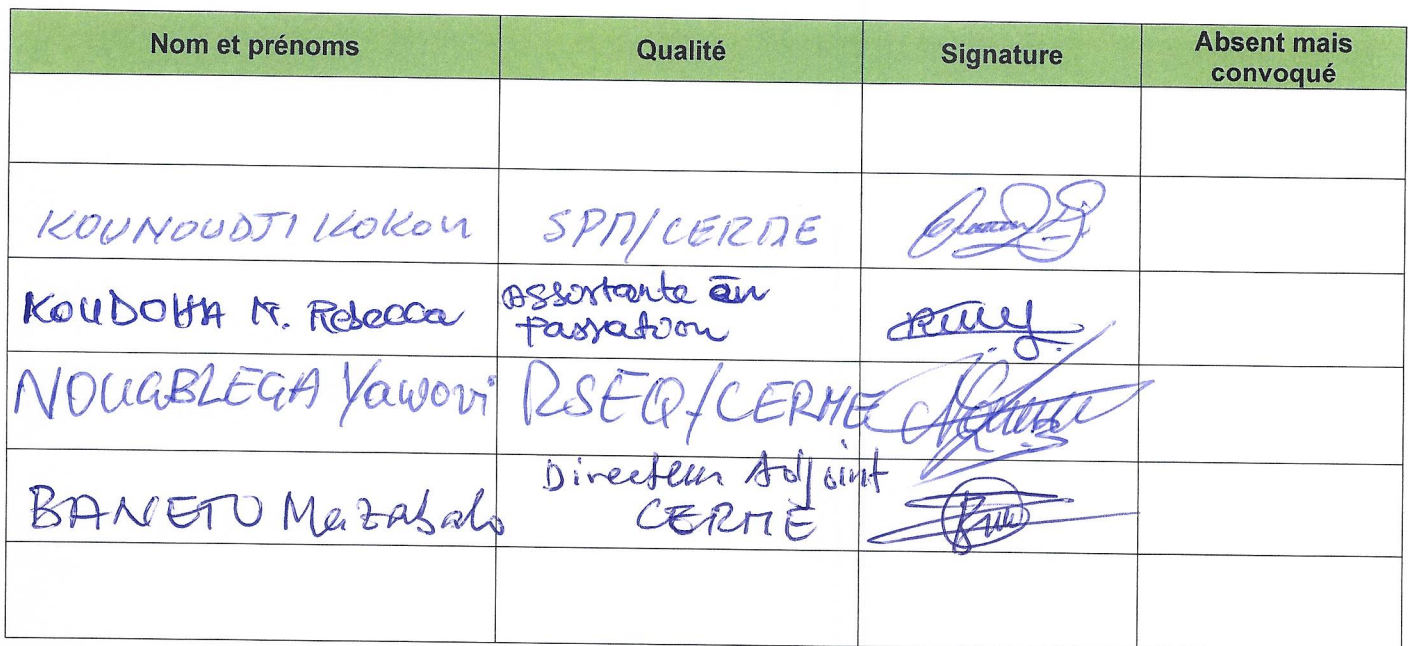 Nom et prénoms Qualité Signature Absent mais convoqué
KOUNOUDJI KOKOU SPM/CERME
KOUDOHA N. Rebecca Assistante en Passation
NOUGBLEGA Yawovi RSEQ/CERME
BANETO Mazabalo Directeur Adjoint CERME